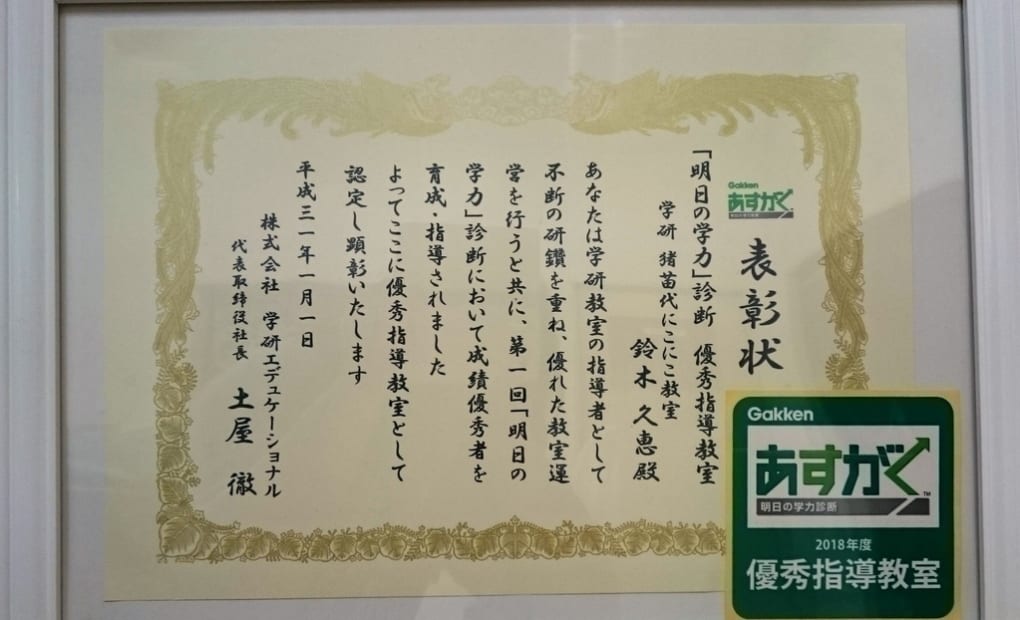 Gakken
あすがく
明日の学力診断
表彰状
「明日の学力」診断 優秀指導教室
学研 猪苗代にこにこ教室
鈴木 久恵 殿
あなたは学研教室の指導者として
不断の研鑽を重ね、優れた教室運
営を行うと共に、第一回「明日の
学力」診断において成績優秀者を
育成・指導されました
よってここに優秀指導教室として
認定し顕彰いたします
平成三一年一月一日
株式会社 学研エデュケーショナル
代表取締役社長 土屋 徹
Gakken
あすがく™
明日の学力診断
2018年度
優秀指導教室